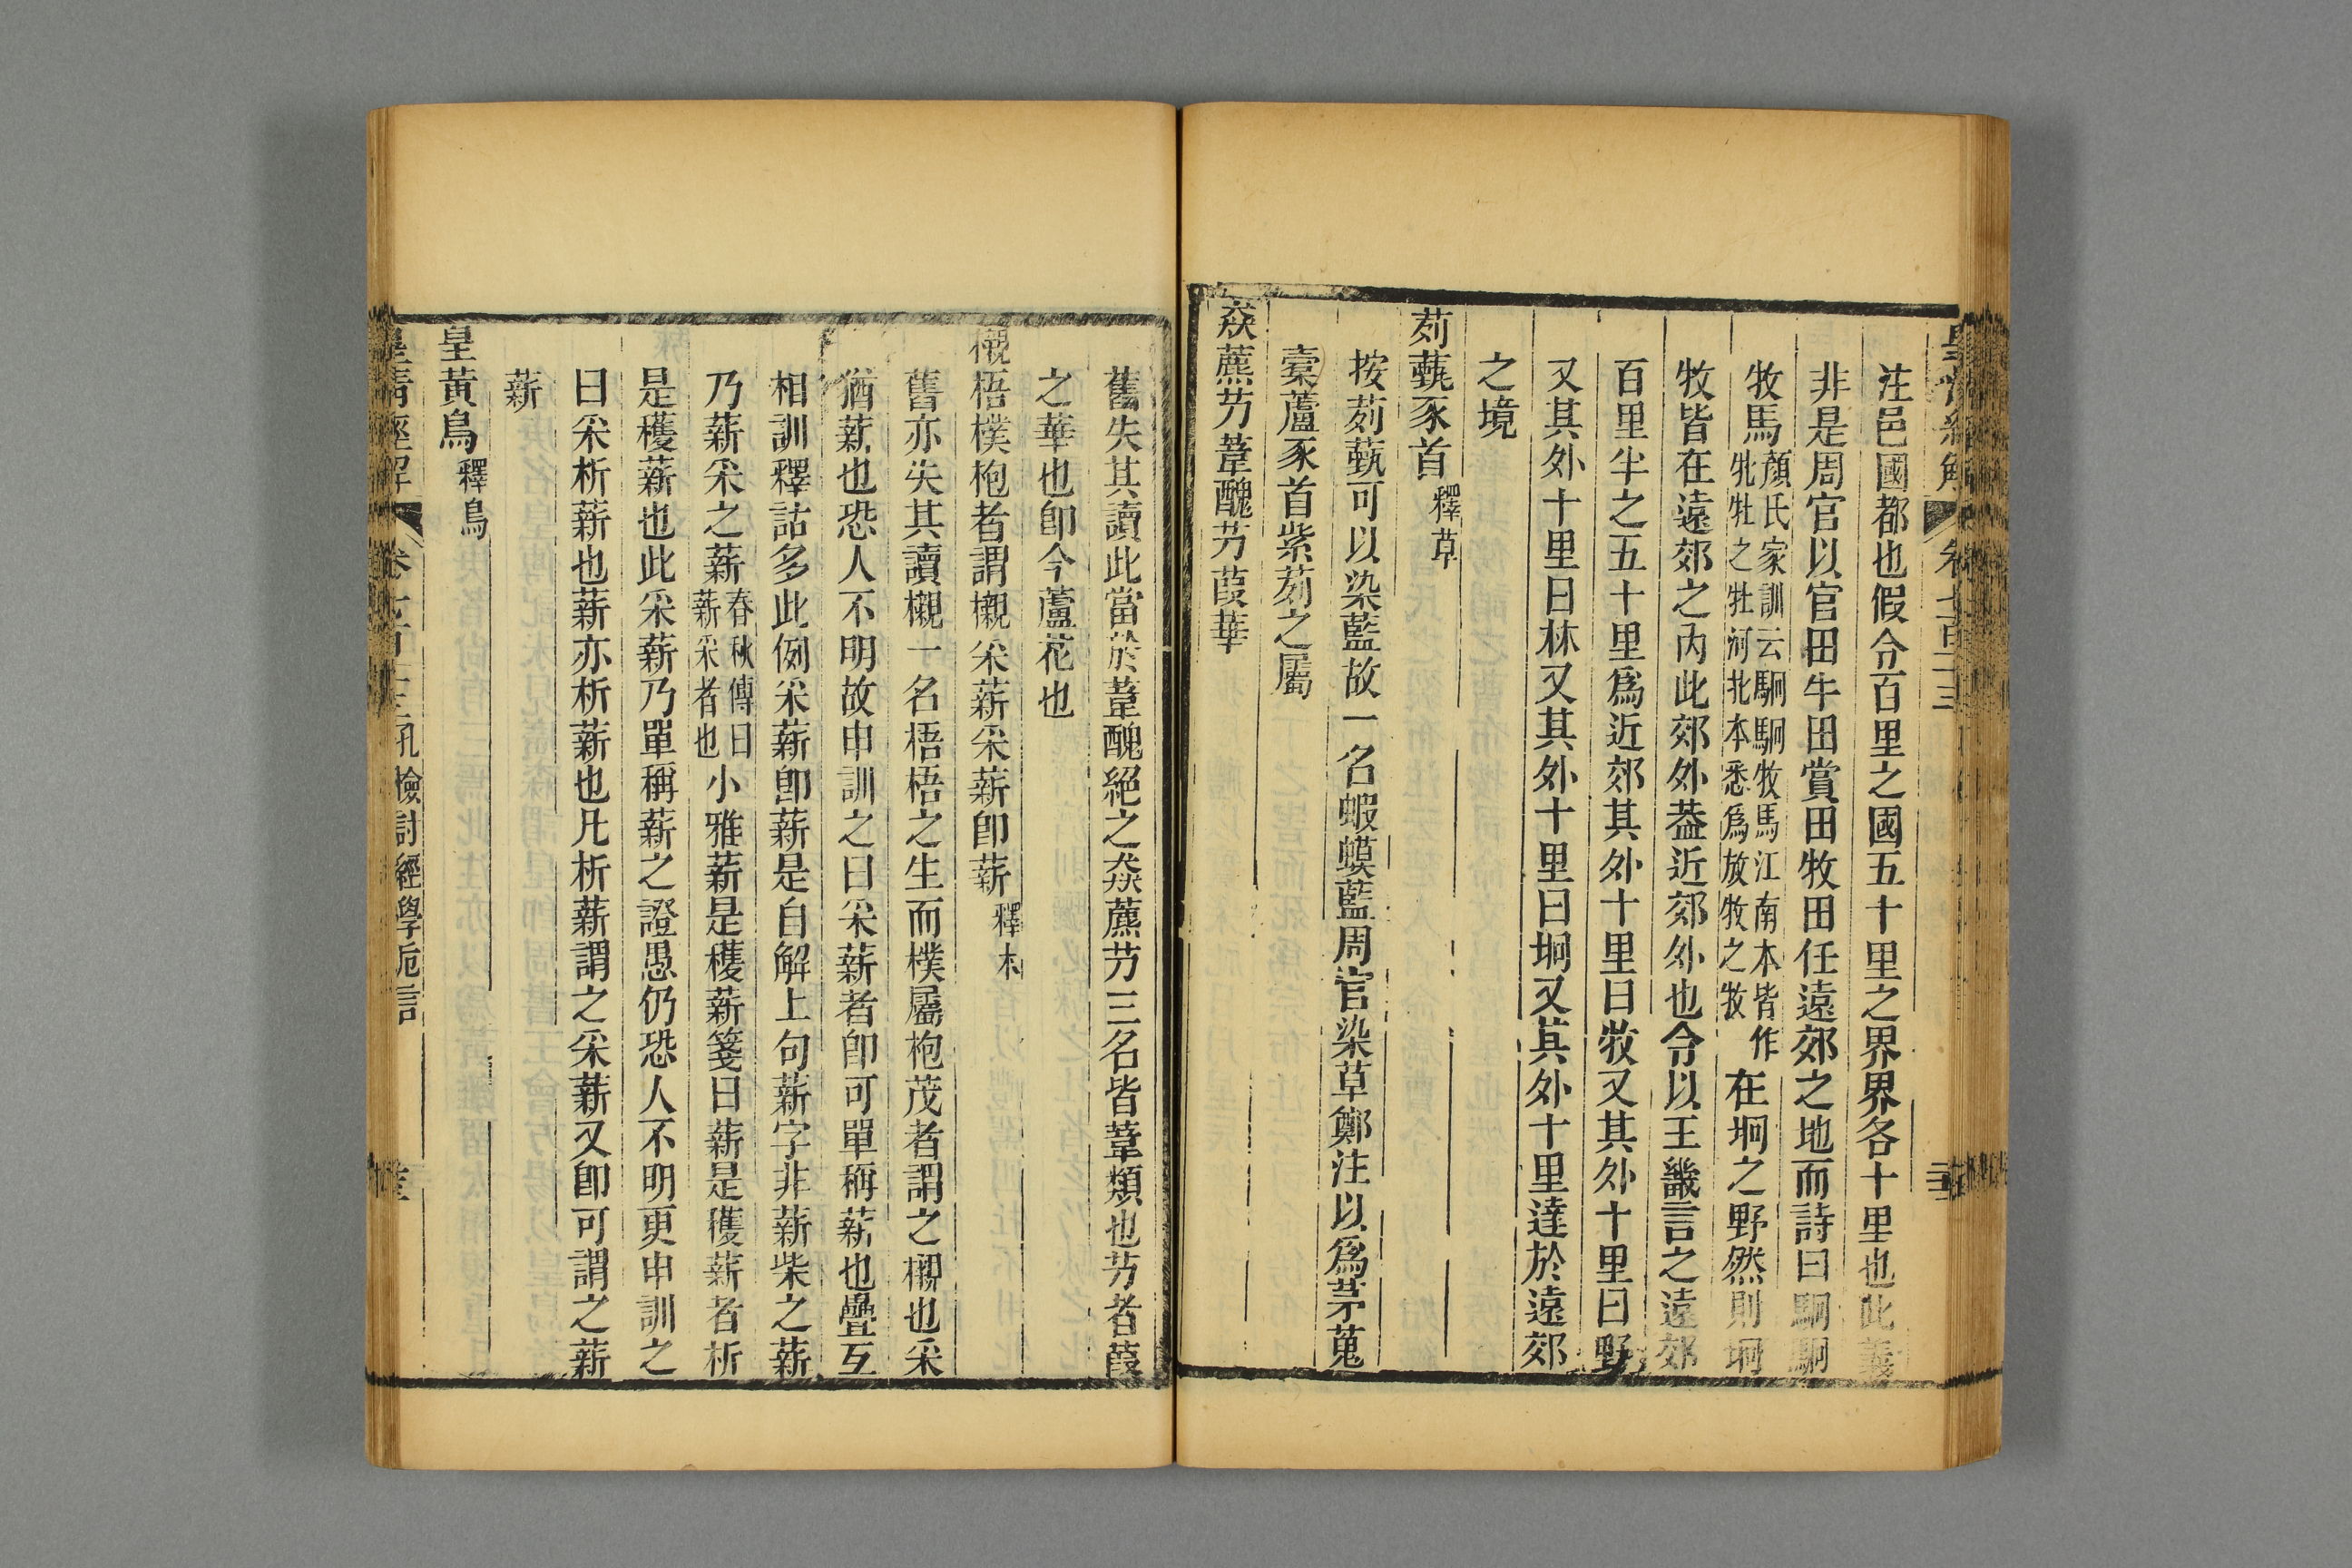 皇清經解 卷七百十三
注邑國都也假令百里之國五十里之界界各十里也此義
非是周官以官田牛田賞田牧田任遠郊之地而詩曰駉駉
牧馬顏氏家訓云駉駉牧馬江南本皆作牝牡之牡河北本悉為放牧之牧在坰之野然則坰
牧皆在遠郊之內此郊外葢近郊外也令以王畿言之遠郊
百里半之五十里為近郊其外十里曰牧又其外十里曰野
又其外十里曰林又其外十里曰坰又其外十里達於遠郊
之境
茢薽豕首釋草
按茢薽可以染藍故一名蝦蟆藍周官染草鄭注以為茅蒐
橐蘆豕首紫茢之屬
猋藨芀葦醜芀葭華
舊失其讀此當於葦醜絕之猋藨芀三名皆葦類也芀者葭
之華也卽今蘆花也
櫬梧樸枹者謂櫬采薪采薪卽薪釋木
舊亦失其讀櫬一名梧梧之生而樸屬枹茂者謂之櫬也采
猶薪也恐人不明故申訓之曰采薪者卽可單稱薪也疊互
相訓釋詁多此例采薪卽薪是自解上句薪字非薪柴之薪
乃薪采之薪春秋傳曰薪采者也小雅薪是穫薪箋曰薪是穫薪者析
是穫薪也此采薪乃單稱薪之證愚仍恐人不明更申訓之
曰采析薪也薪亦析薪也凡析薪謂之采薪又卽可謂之薪
薪
皇黃鳥釋鳥
皇清經解 卷七百十三 孔檢討經學卮言